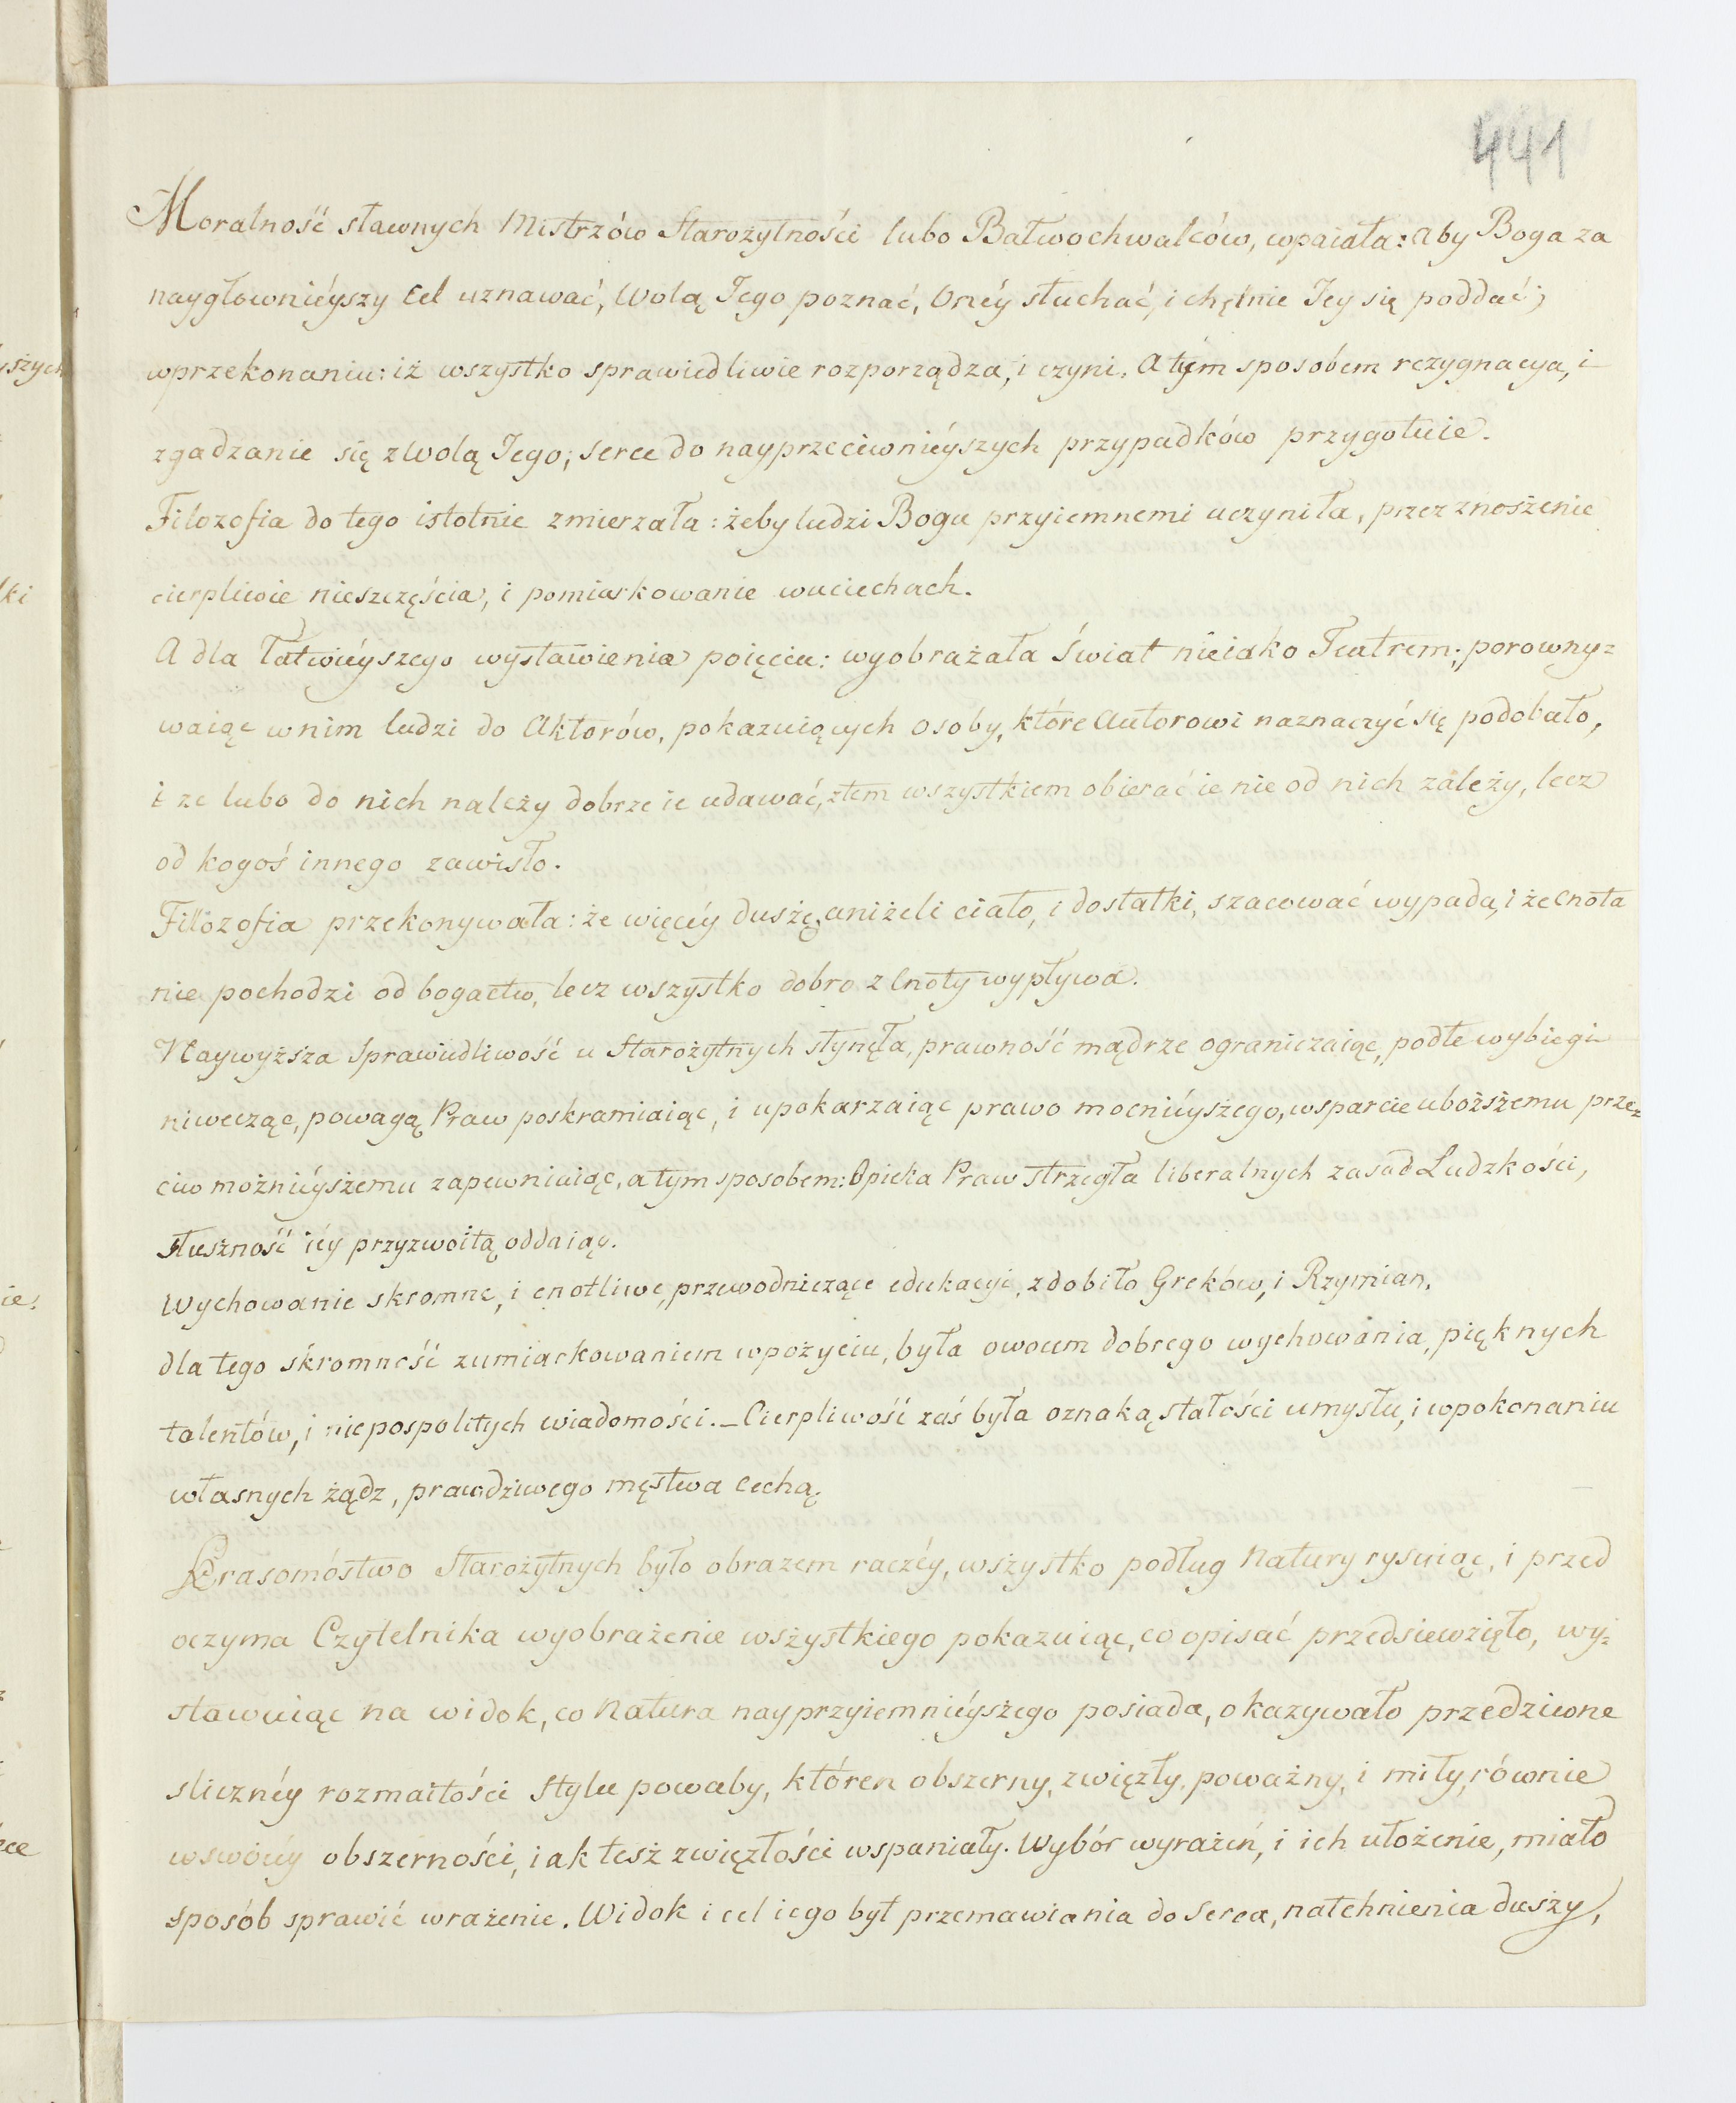 441
Moralność sławnych Mistrzów Starożytności lubo Bałwochwalców, wpaiała: aby Boga za
naygłowniéyszy Cel uznawać, Wolą Jego poznać, Onéy słuchać, i chętnie Jey się poddać;
wprzekonaniu: iż wszystko sprawiedliwie rozporządza, i czyni, a tym sposobem rezygnacya, i
zgadzanie się zWolą Jego; serce do nayprzeciwniéyszych przypadków przygotuie.
Filozofia do tego istotnie zmierzała: żeby ludzi Bogu przyiemnemi uczyniła, przez znoszenie
cierpliwie nieszczęścia, i pomiarkowanie wuciechach.
A dla łatwiéyszego wystawienia poięciu: wyobrażała Świat nieiako Teatrem; porowny=
waiąc wnim ludzi do Aktorów, pokazuiących osoby, które Autorowi naznaczyć się podobało,
i że lubo do nich należy dobrze ie udawać, ztem wszystkiem obierać ie nie od nich zależy, lecz
od kogoś innego zawisło.
Filozofia przekonywała: że więcéy duszę, aniżeli ciało, i dostatki, szacować wypada, i że Cnota
nie pochodzi od bogactw, lecz wszystko dobro z Cnoty wypływa.
Naywyższa Sprawiedliwość u Starożytnych słynęła, prawność mądrze ograniczaiąc, podłe wybiegi
niwecząc, powagą Praw poskramiaiąc, i upokarzaiąc prawo mocniéyszego, wsparcie uboższemu prze=
ciw możniéyszemu zapewniaiąc, a tym sposobem: Opieka Praw strzegła liberalnych zasad Ludzkości,
słuszność iéy przyzwoitą oddaiąc.
Wychowanie skromne, i cnotliwe, przewodniczące edukacyi, zdobiło Greków, i Rzymian,
dla tego skromność zumiarkowaniem wpożyciu, była owocem dobrego wychowania, pięknych
talentów, i niepospolitych wiadomości. _ Cierpliwość zaś była oznaką stałości umysłu, i wpokonaniu
własnych żądz, prawdziwego męstwa cechą.
Krasomóstwo Starożytnych było obrazem raczéy, wszystko podług Natury rysuiąc, i przed
oczyma Czytelnika wyobrażenie wszystkiego pokazuiąc, co opisać przedsiewzięło, wy=
stawuiąc na widok, co Natura nayprzyiemniéyszego posiada, okazywało przedziwne
sliczney rozmaitości stylu powaby, któren obszerny, zwięzły, poważny, i miły, równie
wswoiéy obszerności, iak tesz zwięzłości wspaniały. Wybór wyrażeń, i ich ułożenie, miało
sposób sprawić wrażenie. Widok i cel iego był przemawiania do Serca, natchnienia duszy,